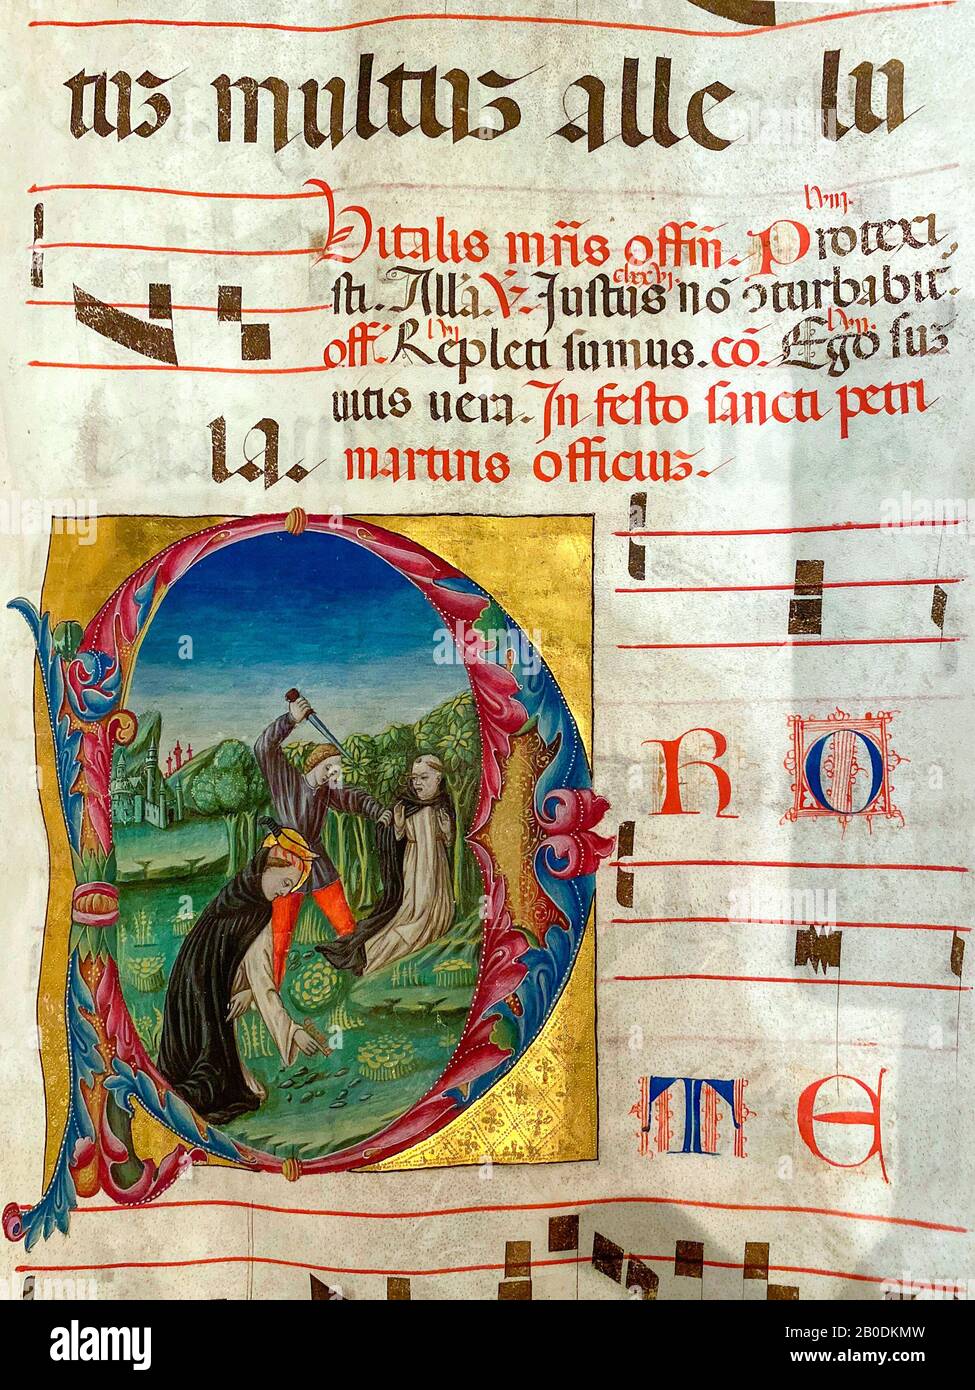 tus multus alle lu
lviii.
Vitalis mr̃is offm̃. Protexi,
sti. Alla. V. Justus nõ ɔturbabit̃.
clxxvi.
off. Repleti sumus. cõ. Ego sum
lvii. lvii.
uitis uera. In festo sancti petri
ia. martiris officium.
P
R O
T E
alamy
Image ID: 2B0DKMW
www.alamy.com